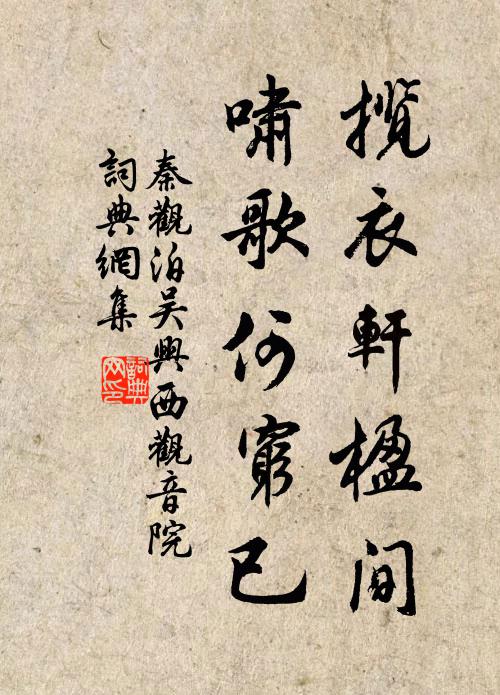 攬衣軒楹間
嘯歌何窮已
秦觀泊吳興西觀音院
詞典網集
詞典網印